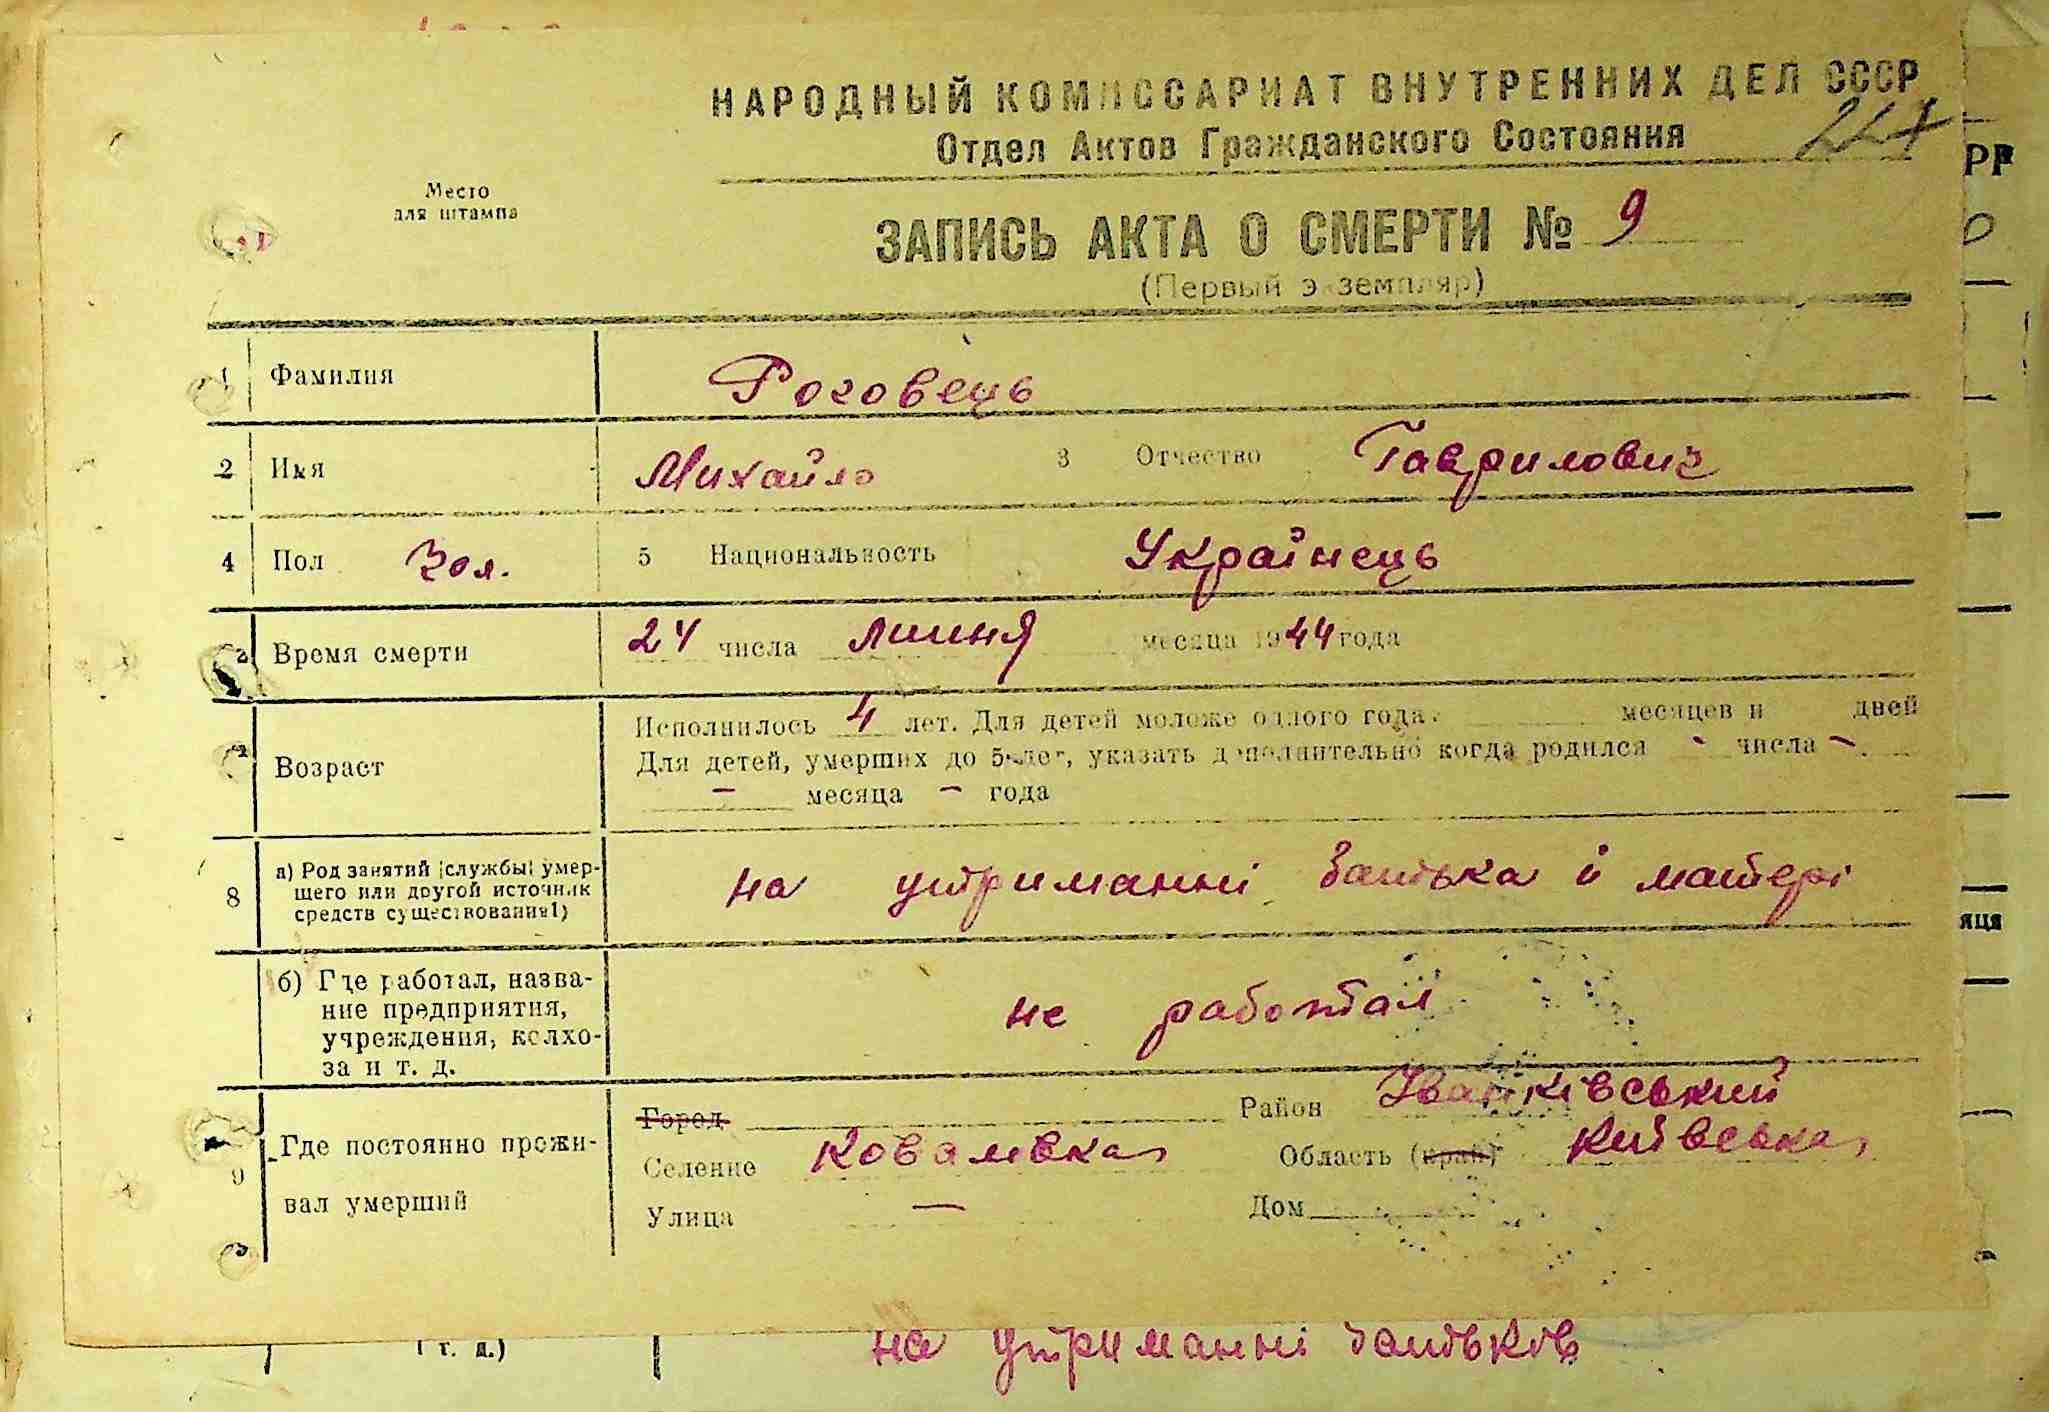 НАРОДНЫЙ КОМИССАРИАТ ВНУТРЕННИХ ДЕЛ СССР
Отдел Актов Гражданского Состояния
Место
для штампа
ЗАПИСЬ АКТА О СМЕРТИ № 9
(Первый экземпляр)
1 Фамилия Роговець
2 Имя Михайло 3 Отчество Гаврилович
4 Пол чол. 5 Национальность Українець
Время смерти 24 числа липня месяца 1944 года
Исполнилось 4 лет. Для детей моложе одного года месяцев и дней
Возраст Для детей, умерших до 5 лет, указать дополнительно когда родился - числа -
- месяца - года
8 а) Род занятий (службы) умер-
шего или другой источник
средств существования1) на утриманні батька й матері
б) Где работал, назва-
ние предприятия,
учреждения, колхо-
за и т. д. не работал
Город Район Іванківський
9 Где постоянно прожи-
вал умерший
Селение Ковалевка Область (край) Київська
Улица — Дом
(т. д.) на утриманні батьків
РР
яця